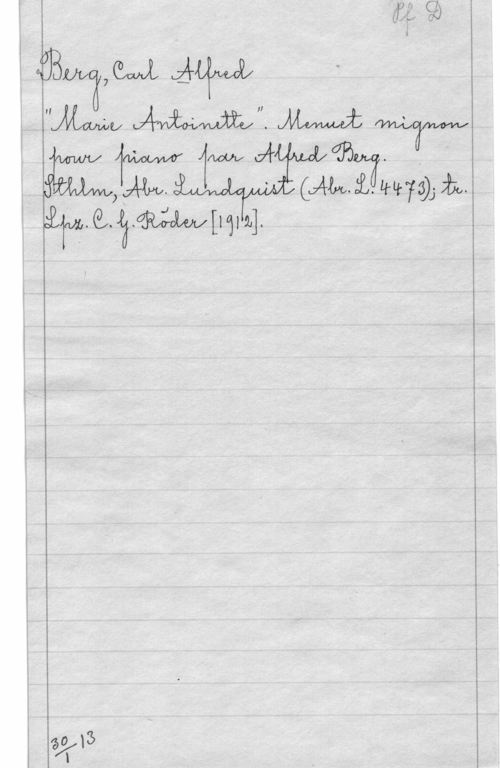 Pf D
Berg, Carl Alfred
"Marie Antoinette". Menuet mignon
pour piano par Alfred Berg.
Sthlm, Abr. Lundquist (Abr. L. 4473); tr.
Lpz. C. G. Röder [1912].
30/1 13